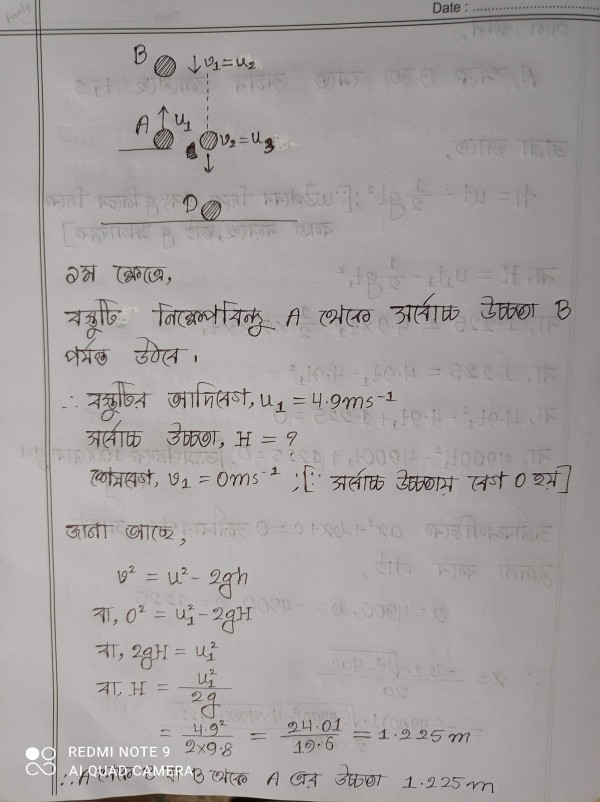 Date :
B ↓v₁=u₂
A ↑u₁ v₂=u₃
↓
D
১ম ক্ষেত্রে,
বস্তুটি নিক্ষেপবিন্দু A থেকে সর্বোচ্চ উচ্চতা B
পর্যন্ত উঠবে।
∴ বস্তুটির আদিবেগ, u₁ = 4.9ms⁻¹
সর্বোচ্চ উচ্চতা, H = ?
শেষবেগ, v₁ = 0ms⁻¹ ;[∵ সর্বোচ্চ উচ্চতায় বেগ 0 হয়]
জানা আছে,
v² = u² - 2gh
বা, 0² = u₁² - 2gH
বা, 2gH = u₁²
বা, H = u₁²/2g
= 4.9²/2×9.8 = 24.01/19.6 = 1.225m
∴ A থেকে B বা B থেকে A এর উচ্চতা 1.225m
REDMI NOTE 9
AI QUAD CAMERA